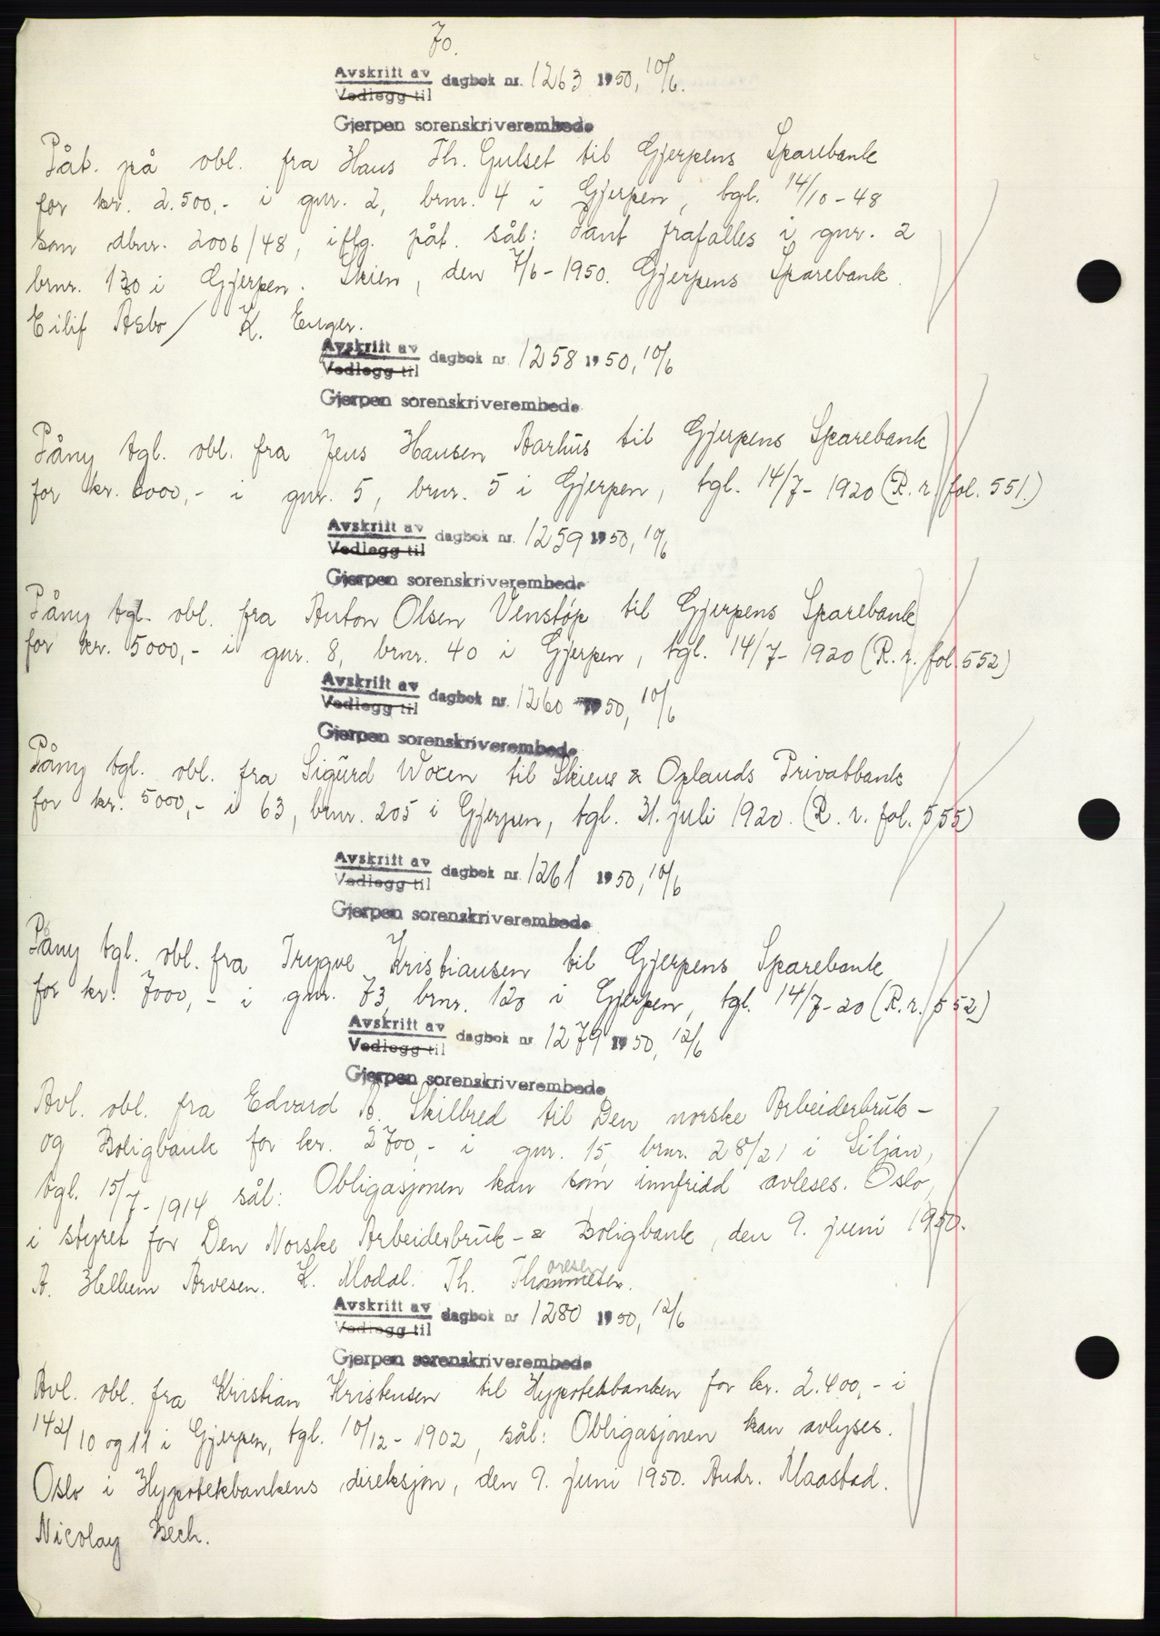 70.
Avskrift av dagbok nr. 1263 1950, 10/6.
Vedlegg til
Gjerpen sorenskriverembede
Påt. på obl. fra Hans Th. Gulset til Gjerpens Sparebank
for kr. 2.500,- i gnr. 2, brnr. 4 i Gjerpen, tgl. 14/10-48
som dbnr. 2006/48, iflg. påt. sål: Pant frafalles i gnr. 2
brnr. 130 i Gjerpen. Skien, den 7/6-1950. Gjerpens Sparebank.
Eilif Asbo / K. Enger.
Avskrift av dagbok nr. 1258 1950, 10/6
Vedlegg til
Gjerpen sorenskriverembede
Påny tgl. obl. fra Jens Hansen Aarhus til Gjerpens Sparebank
for kr. 6000,- i gnr. 5, brnr. 5 i Gjerpen, tgl. 14/7-1920 (P. r. fol. 551.)
Avskrift av dagbok nr. 1259 1950, 10/6
Vedlegg til
Gjerpen sorenskriverembede
Påny tgl. obl. fra Anton Olsen Venstøp til Gjerpens Sparebank
for kr. 5000,- i gnr. 8, brnr. 40 i Gjerpen, tgl. 14/7-1920 (P. r. fol. 552)
Avskrift av dagbok nr. 1260 1950, 10/6
Vedlegg til
Gjerpen sorenskriverembede
Påny tgl. obl. fra Sigurd Woxen til Skiens & Oplands Privatbank
for kr. 5000,- i 63, brnr. 205 i Gjerpen, tgl. 31. juli 1920. (P. r. fol. 555)
Avskrift av dagbok nr. 1261 1950, 10/6
Vedlegg til
Gjerpen sorenskriverembede
Påny tgl. obl. fra Trygve Kristiansen til Gjerpens Sparebank
for kr. 7000,- i gnr. 73, brnr. 120 i Gjerpen, tgl. 14/7-20 (P. r. 552)
Avskrift av dagbok nr. 1279 1950, 12/6
Vedlegg til
Gjerpen sorenskriverembede
Avl. obl. fra Edvard A. Skilbred til Den norske Arbeiderbruk-
og Boligbank for kr. 2700,- i gnr. 15, brnr. 28/21 i Siljan,
tgl. 15/7-1914, sål: Obligasjonen kan som innfridd avleses. Oslo,
i styret for Den Norske Arbeiderbruk- & Boligbank, den 9. juni 1950.
A. Hellum Arvesen. K. Modal. Th. Thoresen.
Avskrift av dagbok nr 1280 1950, 12/6
Vedlegg til
Gjerpen sorenskriverembede
Avl. obl. fra Kristian Kristensen til Hypotekbanken for kr. 2.400,- i
142/10 og 11 i Gjerpen, tgl. 10/12-1902, sål: Obligasjonen kan avlyses.
Oslo i Hypotekbankens direksjon, den 9. juni 1950. Andr. Maastad.
Nicolay Bech.